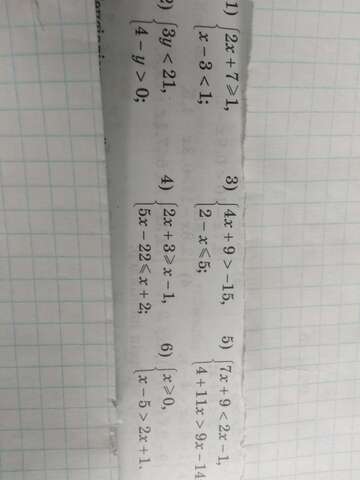 1) {2x + 7 ⩾ 1,
x − 3 < 1;
3) {4x + 9 > −15,
2 − x ⩽ 5;
5) {7x + 9 < 2x − 1,
4 + 11x > 9x − 14
2) {3y < 21,
4 − y > 0;
4) {2x + 3 ⩾ x − 1,
5x − 22 ⩽ x + 2;
6) {x ⩾ 0,
x − 5 > 2x + 1.